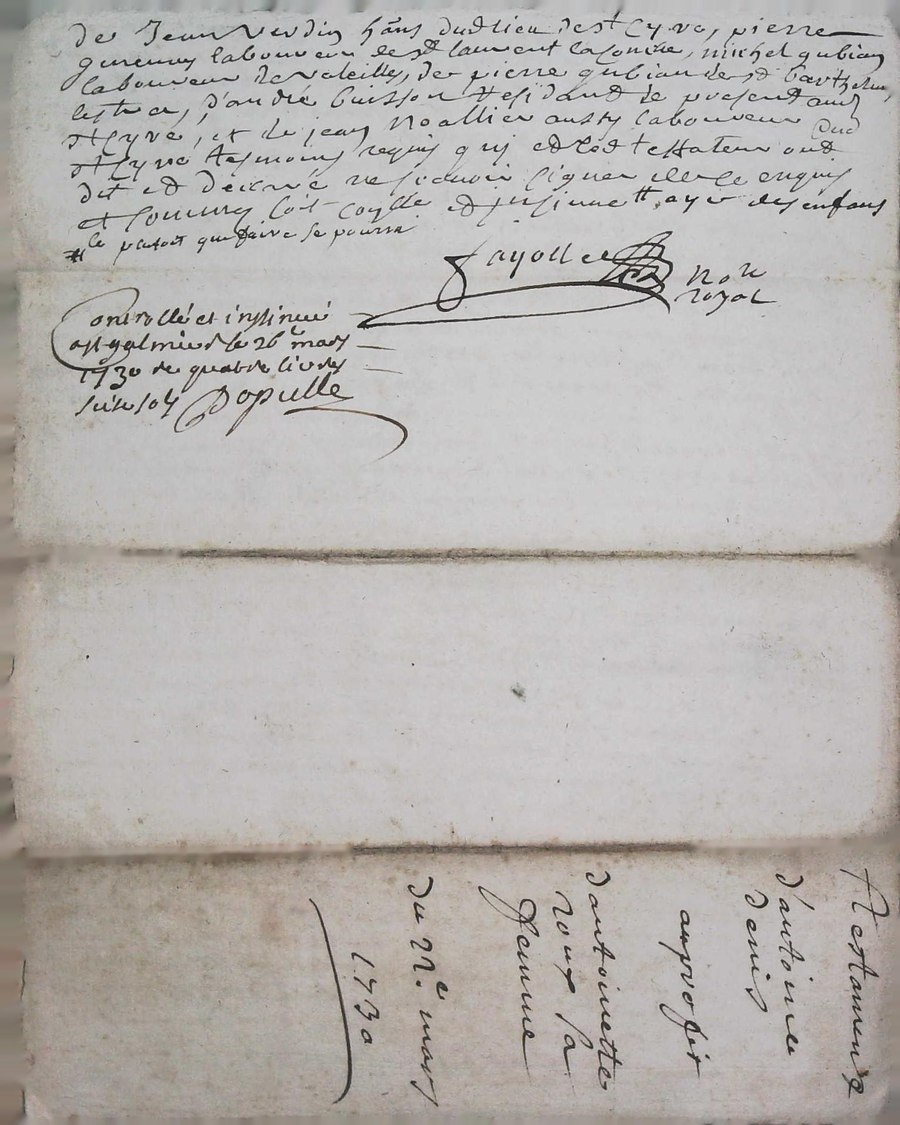 de Jean Verdin hãns dudlieu de st Cyre, pierre
laboureur de st laurent la Conche, michel gubian
laboureur de valeille, de pierre gubian de st barthelmy
lestra, d'andré buisson residand de present aud
st Cyre, et de jean Noallier aussy laboureur dud
st Cyre tesmoins requis qui et led testateur ont
dit et declaré ne scavoir signer de ce enquis
et sommes soit et insinue ## aye des enfans
# le putoit que faire se pourra
fayolle Nore
royal
Controllé et insinué
a st galmier le 26e mars
1730 re quatre livres
seise sols Populle
testament
d'antoine
denis
au profit
d'antoinette
roux sa
femme
du 22e mars
1730